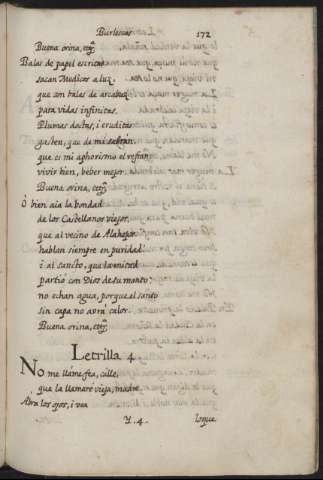 Burlescas 172
Buena orina, etc.
Balas de papel escritas
sacan Medicos a luz,
que son balas de arcabuz
para vidas infinitas.
Plumas doctas, i eruditas
gasten, que de mi sabrán,
que es mi aphorismo el refran
vivir bien, beber mejor.
Buena orina, etc.
Ô bien aia la bondad
de los Castellanos viejos,
que al vecino de Alahejos
hablan siempre en puridad!
i al sancto, que la mitad
partió con Dios de su manto;
no echan agua, porque el santo
sin capa no avrá calor.
Buena orina, etc.
Letrilla 4.
No me llame fea, calle,
que la llamaré vieja, madre.
Abra los ojos, i vea
Y. 4. loque